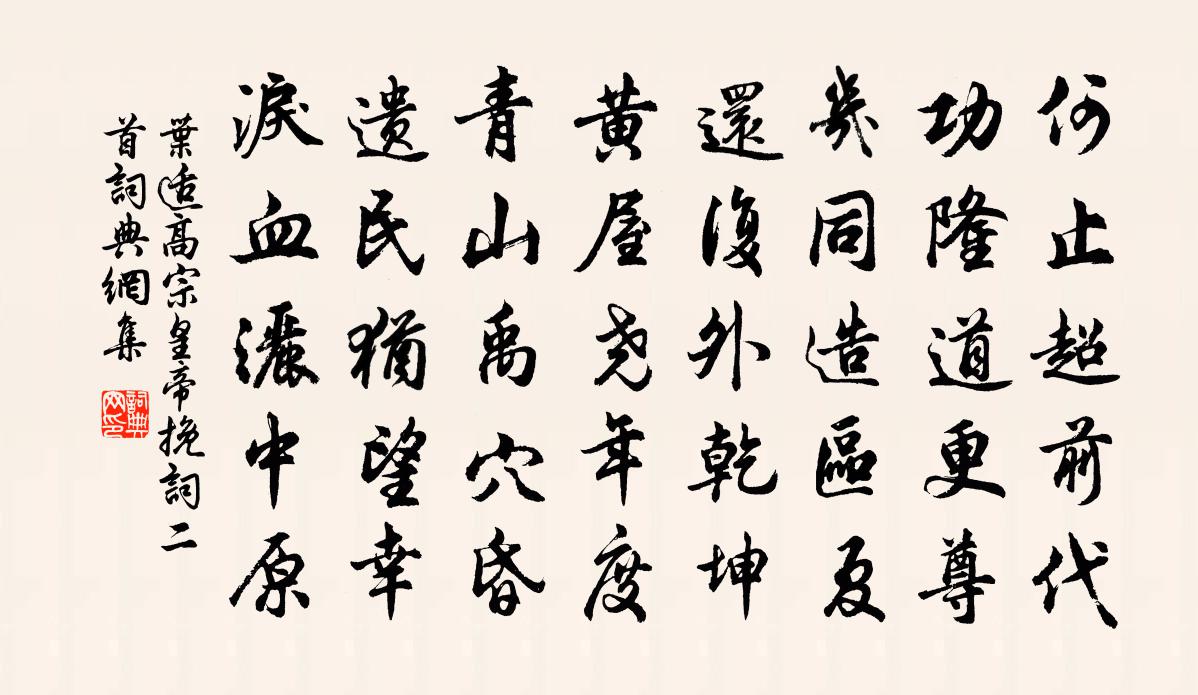 何止超前代
功隆道更尊
幾同造區夏
還復外乾坤
黃屋堯年度
青山禹穴昏
遺民猶望幸
淚血灑中原
葉适高宗皇帝挽詞二
首詞典網集
詞典網印